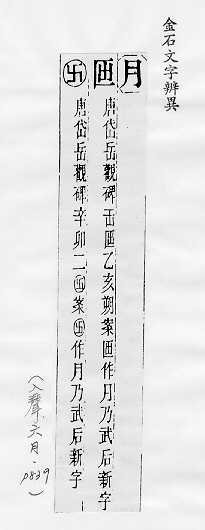 金石文字辨異
月
𠥱 唐岱岳觀碑𠙺𠥱乙亥朔案𠥱作月乃武后新字
卐 唐岱岳觀碑辛卯二卐案卐作月乃武后新字
(入聲六月.p839)